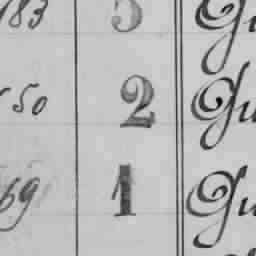 183 5 Gu
50 2 Gu
69 1 Gu